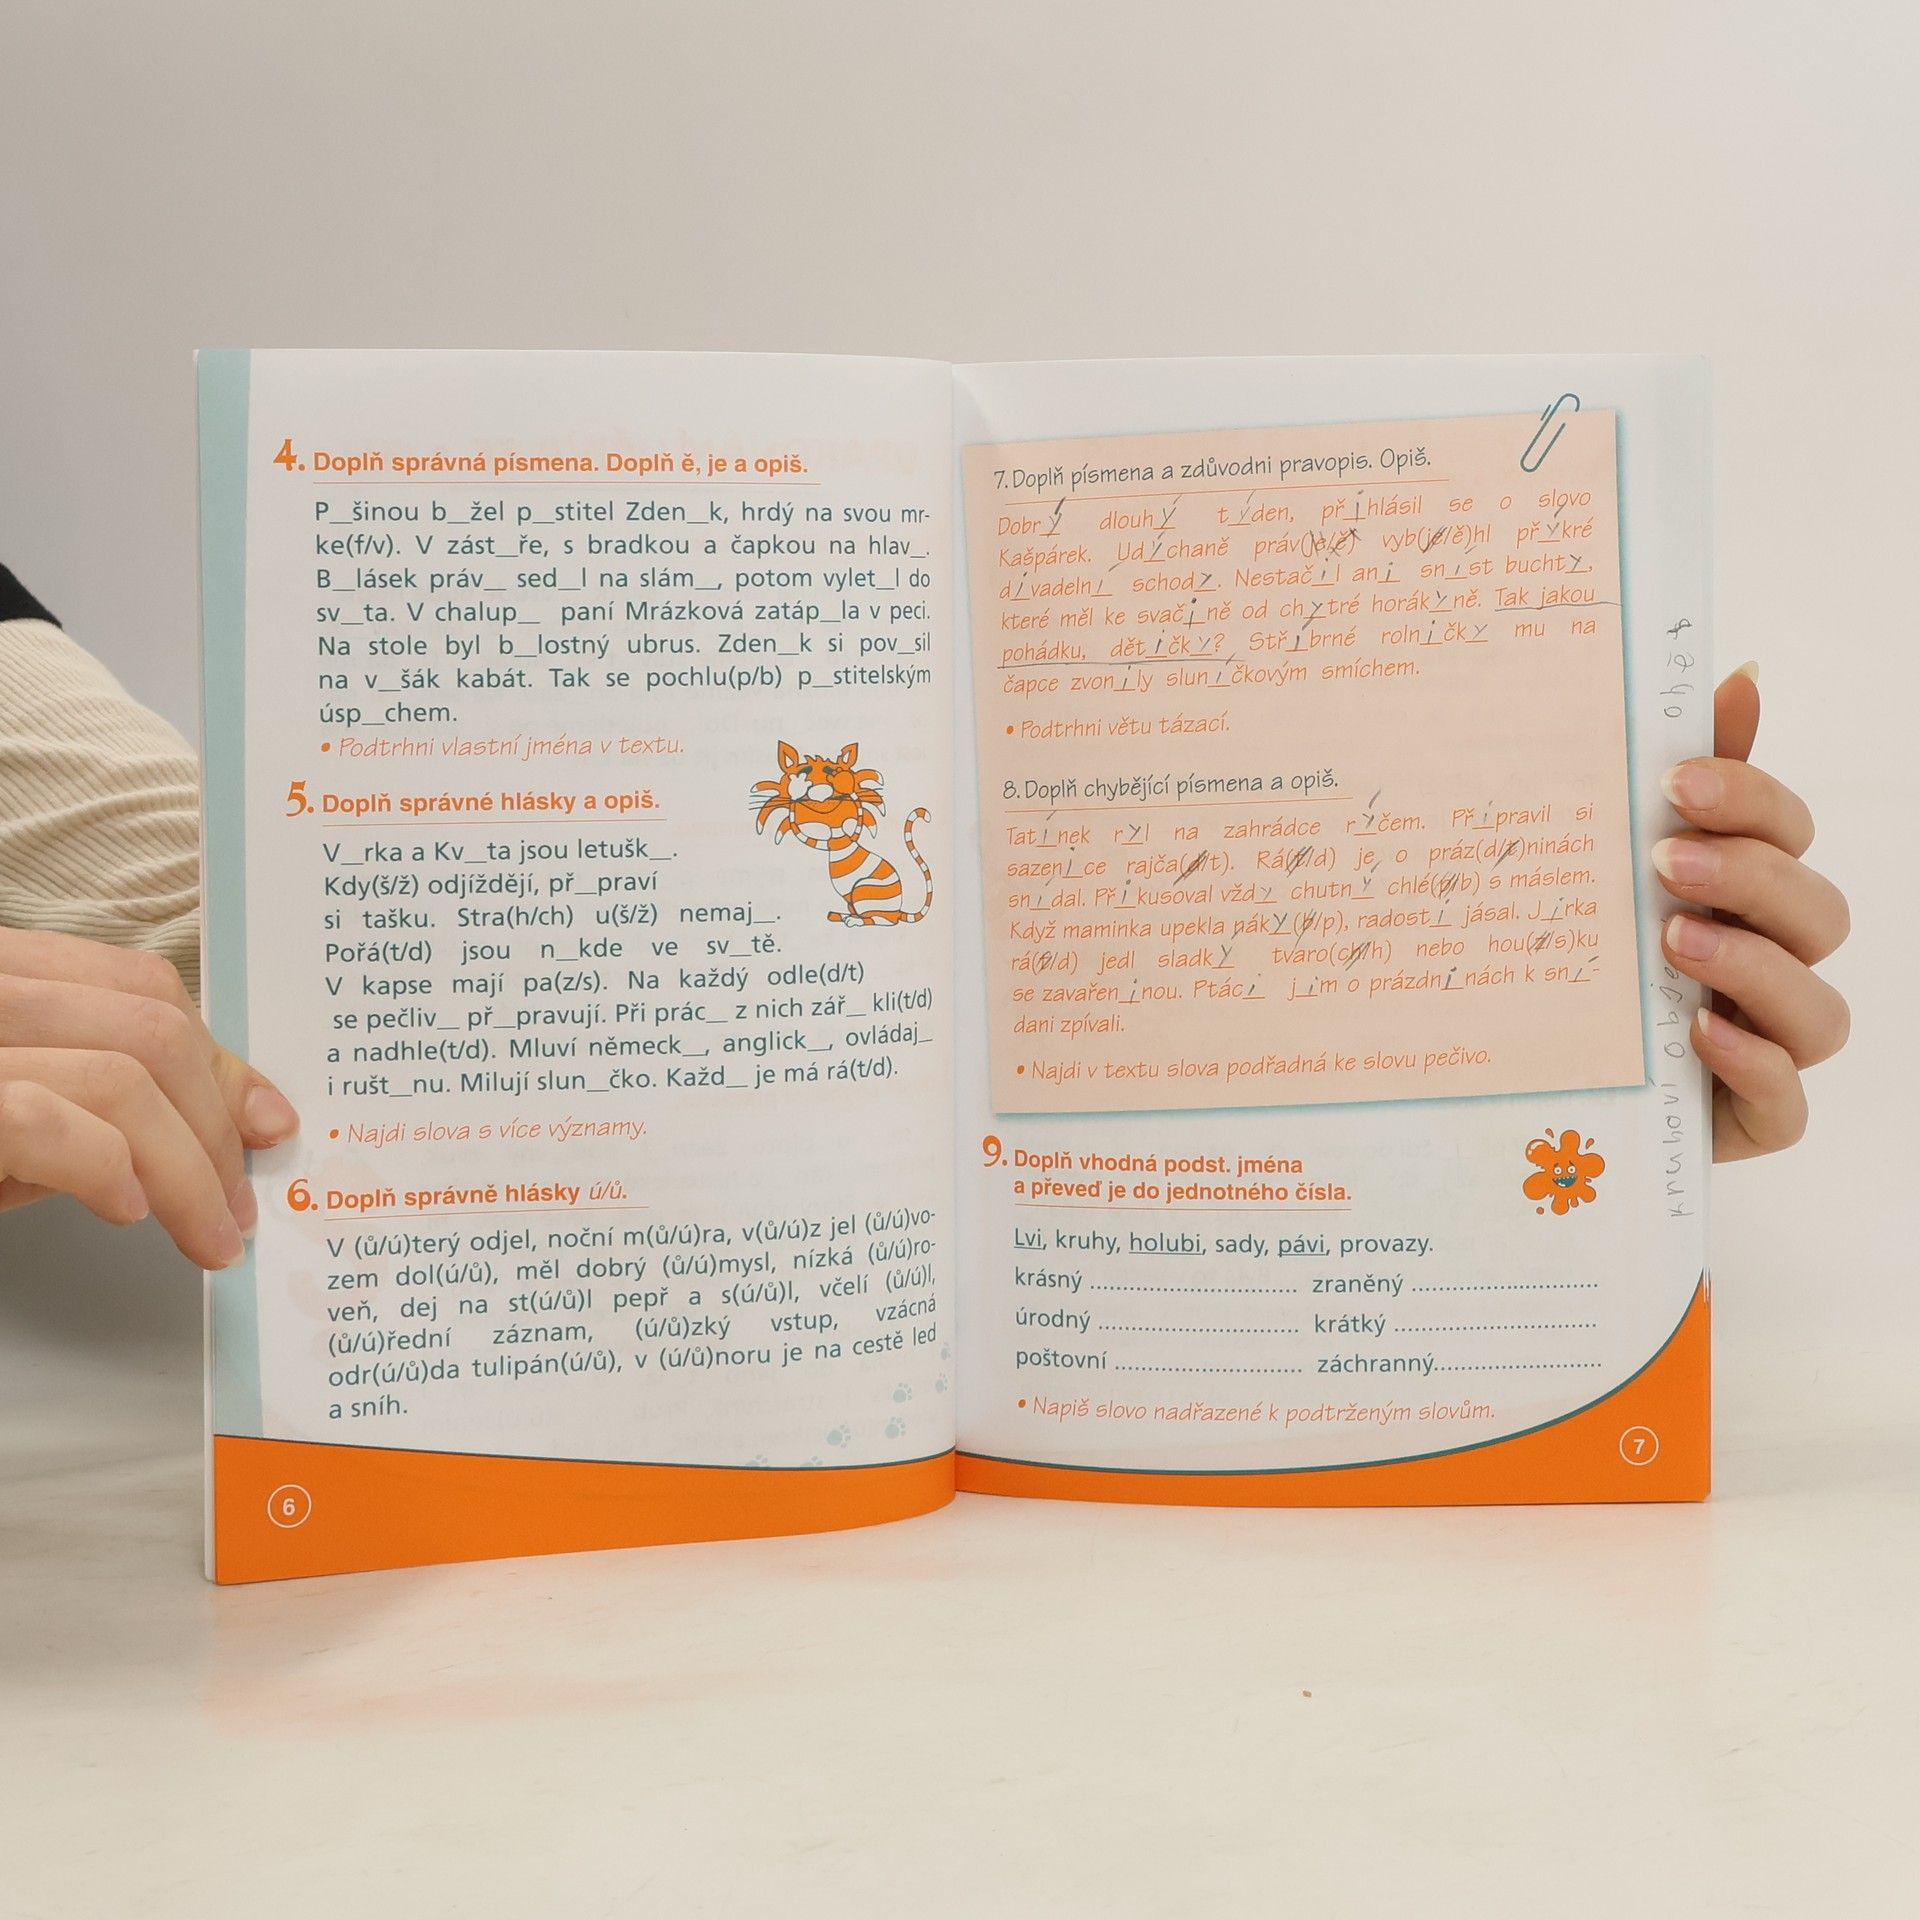 4. Doplň správná písmena. Doplň ě, je a opiš.
P__šinou b__žel p__stitel Zden__k, hrdý na svou mr-
ke(f/v). V zást__ře, s bradkou a čapkou na hlav_.
B__lásek práv_ sed__l na slám__, potom vylet__l do
sv__ta. V chalup__ paní Mrázková zatáp__la v peci.
Na stole byl b__lostný ubrus. Zden__k si pov__sil
na v__šák kabát. Tak se pochlu(p/b) p__stitelským
úsp__chem.
• Podtrhni vlastní jména v textu.
5. Doplň správné hlásky a opiš.
V__rka a Kv__ta jsou letušk__.
Kdy(š/ž) odjíždějí, př__praví
si tašku. Stra(h/ch) u(š/ž) nemaj__.
Pořá(t/d) jsou n__kde ve sv__tě.
V kapse mají pa(z/s). Na každý odle(d/t)
se pečliv__ př__pravují. Při prác__ z nich zář__ kli(t/d)
a nadhle(t/d). Mluví německ__, anglick__, ovládaj__
i rušt__nu. Milují slun__čko. Každ__ je má rá(t/d).
• Najdi slova s více významy.
6. Doplň správně hlásky ú/ů.
V (ů/ú)terý odjel, noční m(ů/ú)ra, v(ů/ú)z jel (ů/ú)vo-
zem dol(ú/ů), měl dobrý (ů/ú)mysl, nízká (ů/ú)ro-
veň, dej na st(ú/ů)l pepř a s(ú/ů)l, včelí (ů/ú)l,
(ů/ú)řední záznam, (ú/ů)zký vstup, vzácná
odr(ú/ů)da tulipán(ú/ů), v (ú/ů)noru je na cestě led
a sníh.
6
7. Doplň písmena a zdůvodni pravopis. Opiš.
Dobrý dlouhý týden, přihlásil se o slovo
Kašpárek. Udýchaně práv(je/ě) vyb(je/ě)hl přykré
divadelní schody. Nestačil ani sníst buchty,
které měl ke svačině od chytré horákyně. Tak jakou
pohádku, dětičky? Stříbrné rolničky mu na
čapce zvonily sluníčkovým smíchem.
• Podtrhni větu tázací.
8. Doplň chybějící písmena a opiš.
Tatínek ryl na zahrádce rýčem. Připravil si
sazenice rajča(d/t). Rá(t/d) je o práz(d/t)ninách
snídal. Přikusoval vždy chutný chlé(p/b) s máslem.
Když maminka upekla páky(b/p), radostí jásal. Jirka
rá(t/d) jedl sladký tvaro(ch/h) nebo hou(z/s)ku
se zavařeninou. Ptáci jim o prázdninách k sní-
dani zpívali.
• Najdi v textu slova podřadná ke slovu pečivo.
9. Doplň vhodná podst. jména
a převeď je do jednotného čísla.
Lvi, kruhy, holubi, sady, pávi, provazy.
krásný .............................. zraněný ..............................
úrodný .............................. krátký ..............................
poštovní .............................. záchranný..............................
• Napiš slovo nadřazené k podtrženým slovům.
7
kruhoví obje